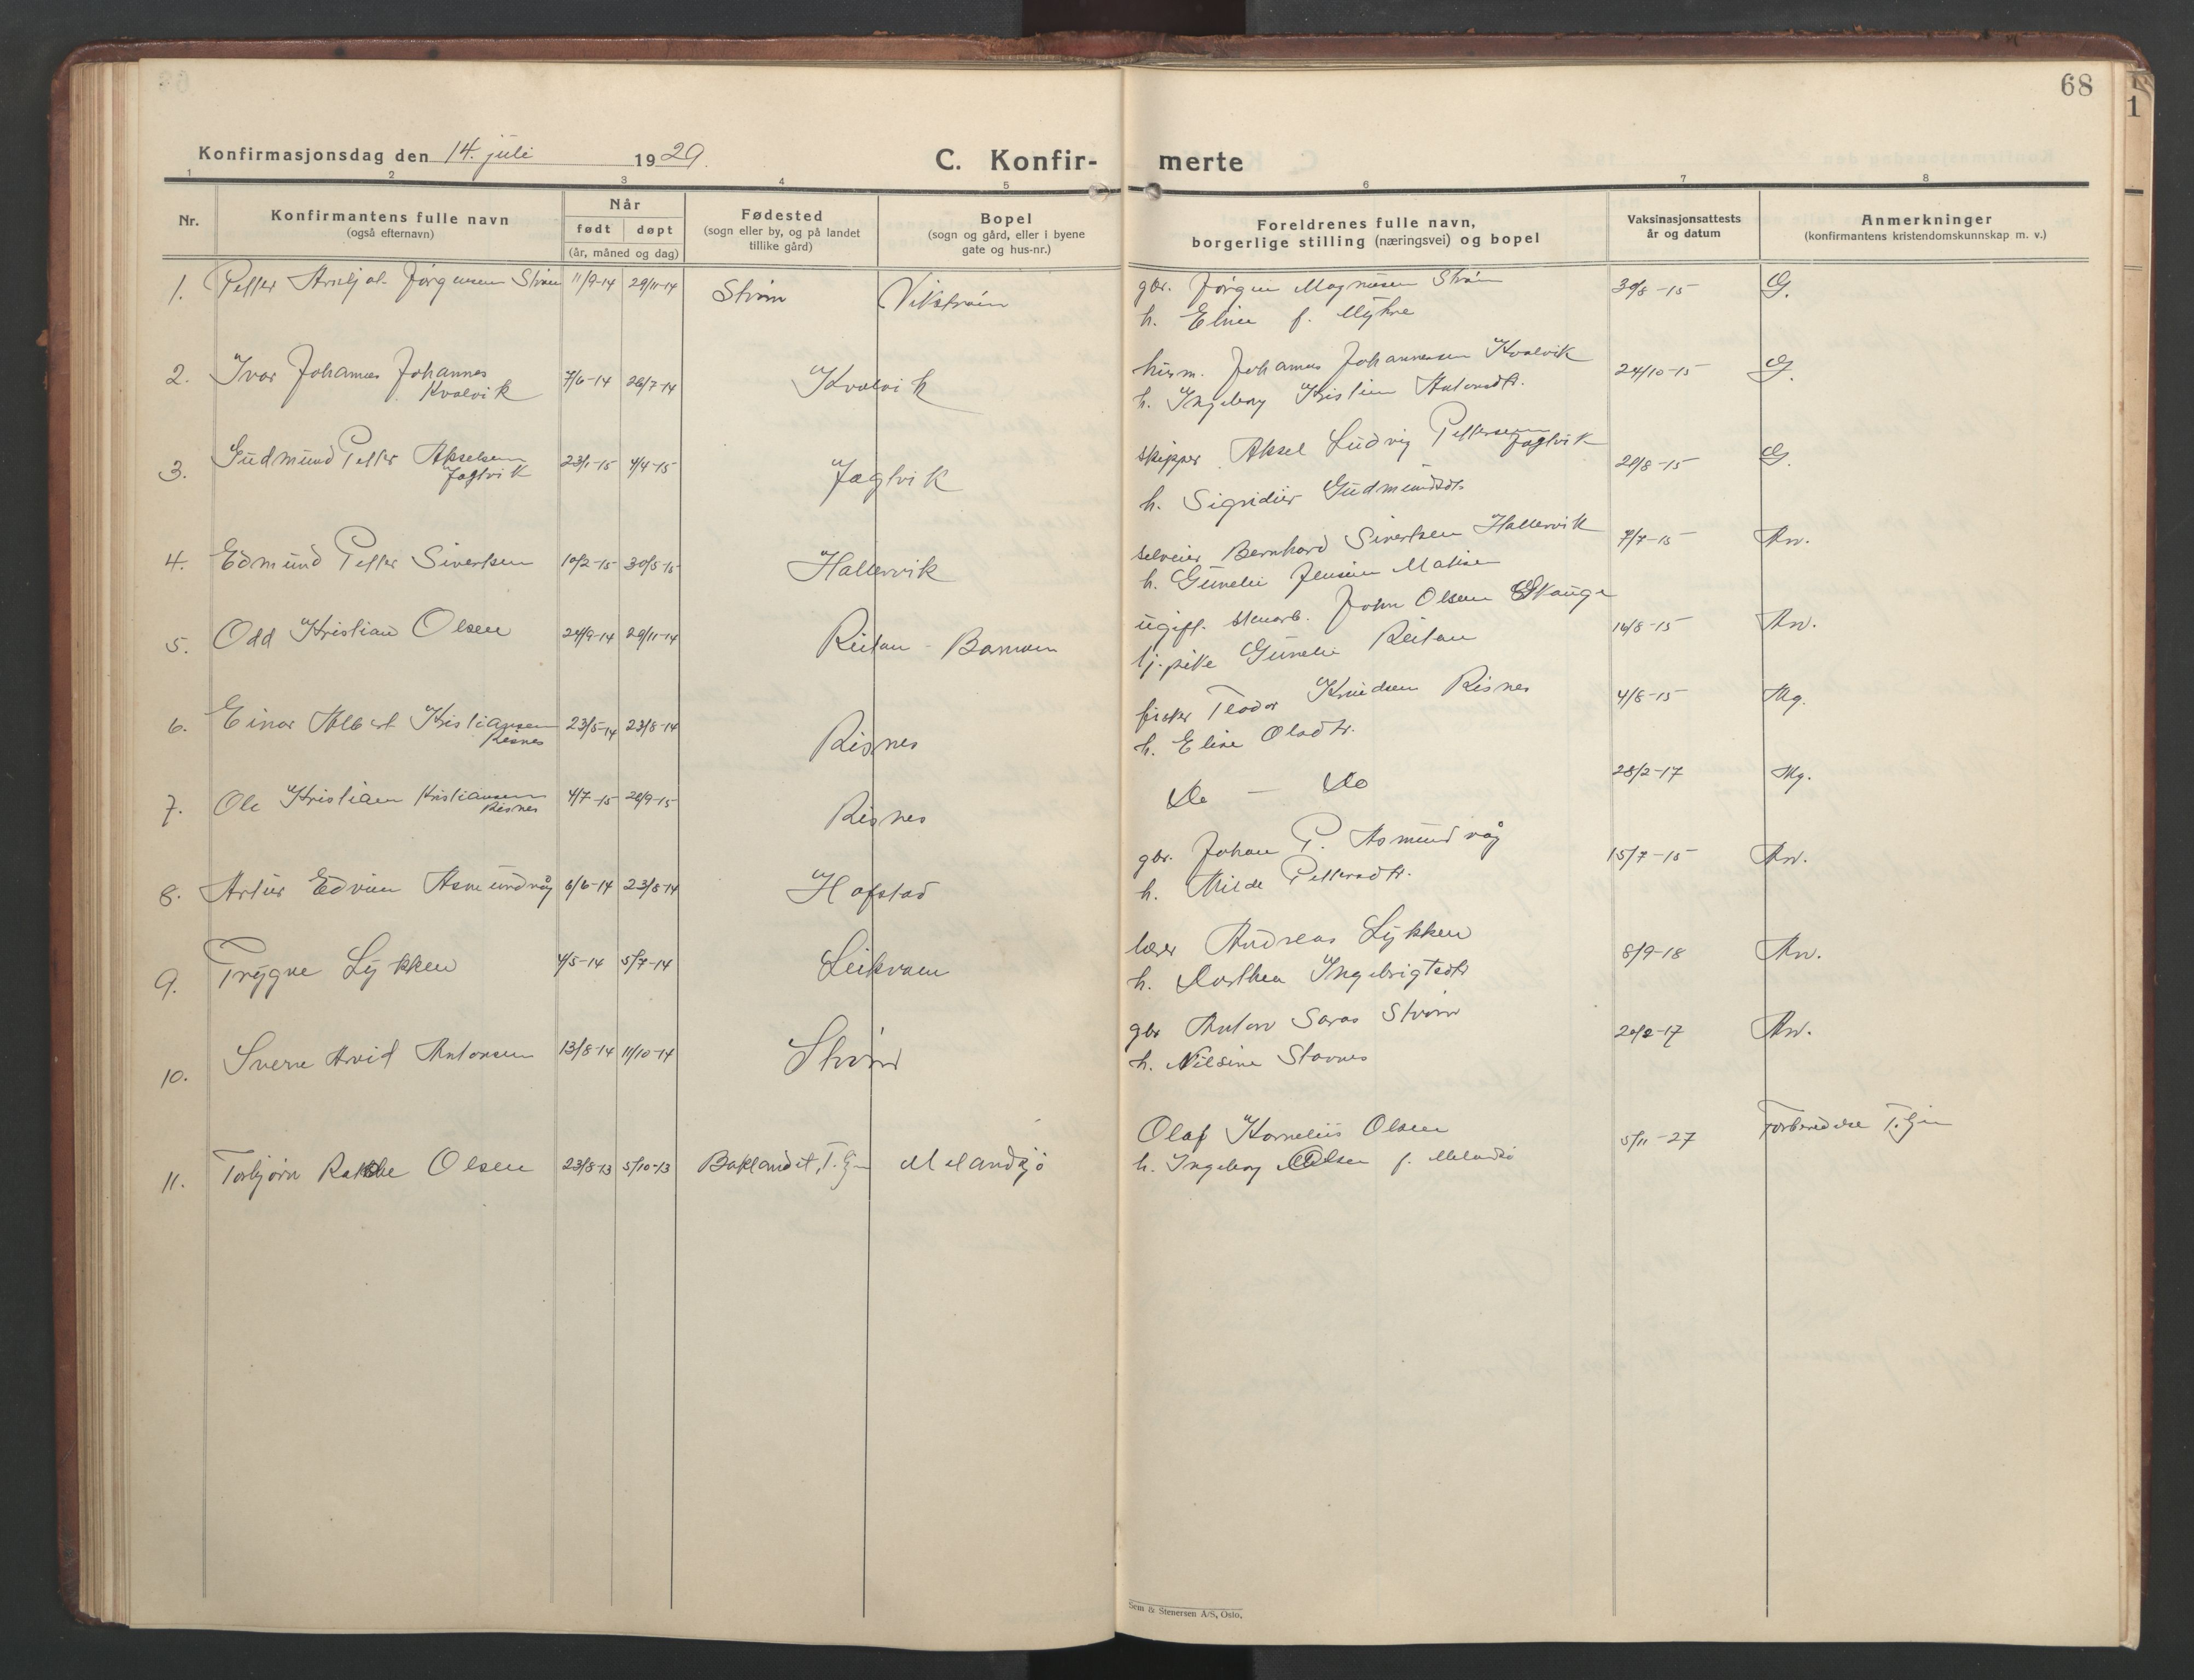 68
Konfirmasjonsdag den 14. juli 1929. C. Konfir- merte
1 2 3 4 5 6 7 8
Nr. Konfirmantens fulle navn (også efternavn) Når født døpt (år, måned og dag) Fødested (sogn eller by, og på landet tillike gård) Bopel (sogn og gård, eller i byene gate og hus-nr.) Foreldrenes fulle navn, borgerlige stilling (næringsvei) og bopel Vaksinasjonsattests år og datum Anmerkninger (konfirmantens kristendomskunnskap m. v.)
1. Petter Arnljot Jørgensen Strøm 11/9-14 29/11-14 Strøm Vikstrøm gbr. Jørgen Magnusen Strøm 30/8-15 G.
h. Eline f. Myhre
2. Ivar Johannes Johannes 7/6-14 26/7-14 Kvalvik husm. Johannes Johannesen Kvalvik 24/10-15 G.
Kvalvik h. Ingeborg Kristine Antonsdtr.
3. Gudmund Petter Akselsen 23/1-15 4/4-15 Jøstvik skipper Aksel Ludvig Pettersen 29/8-15 G.
h. Sigridur Gudmundsdtr
4. Edmund Petter Sivertsen 10/2-15 30/5-15 Hallervik selveier Bernhard Sivertsen Hallervik 7/7-15 Mv.
h. Gunelie Jensine
5. Odd Kristian Olsen 24/9-14 29/11-14 Reitan - ugift. stenarb. John Olsen Skauge 16/8-15 Mv.
pike Gunelie Reitan
6. Einar Albert Kristiansen 23/5-14 23/8-14 Risnes fisker Teodor Knudsen Risnes 4/8-15 Mg.
Risnes h. Elise Olsdtr.
7. Ole Kristian Kristiansen 4/7-15 26/9-15 Risnes Do — Do 28/2-17 Mg.
Risnes
8. Artur Edvin Asmundvåg 6/6-14 23/8-14 Hofstad gbr. Johan P. Asmundvåg 15/7-15 Mv.
h. Milde Pettersdtr.
9. Trygve Lykken 4/5-14 5/7-14 Leikvam lærer Andreas Lykken 8/9-18 Mv.
h. Dorthea Ingebrigtsdtr
10. Sverre Arvid Antonsen 13/8-14 11/10-14 Strøm gbr Anton Saras Strøm 20/2-17 Mv.
h. Nilsine Stavnes
11. Torbjørn Olsen 23/8-13 5/10-13 Baklandet, T.hjm Melandsjø Olaf Kornelius Olsen 5/11-27 Forberedelse T.hjm
h. Ingeborg Olsen f. Melandsø
Sem & Stenersen A/S, Oslo.
1